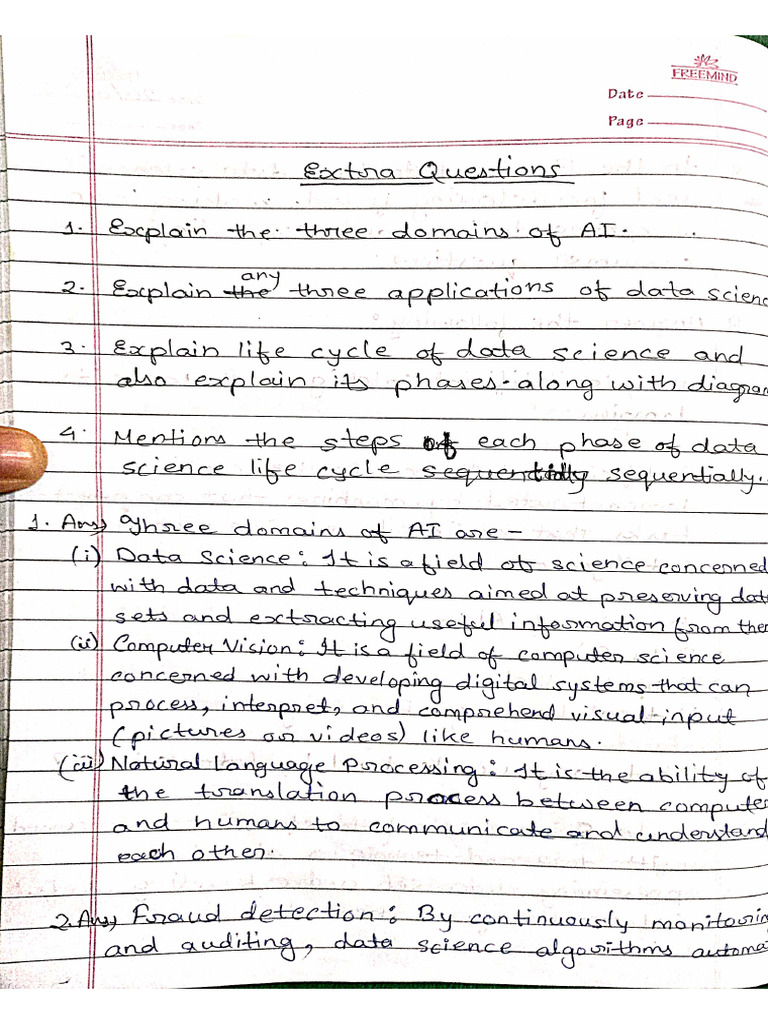 FREEMIND
Date
Page
Extra Questions
1. Explain the three domains of AI.
any
2. Explain the three applications of data scienc
3. Explain life cycle of data science and
also explain its phases along with diagram
4. Mentions the steps of each phase of data
science life cycle sequentially sequentially.
1. Ans) Three domains of AI are -
(i) Data Science: It is a field of science concerned
with data and techniques aimed at preserving data
sets and extracting useful information from them
(ii) Computer Vision: It is a field of computer science
concerned with developing digital systems that can
process, interpret, and comprehend visual input
(pictures or videos) like humans.
(iii) Natural Language Processing: It is the ability of
the translation process between compute
and humans to communicate and understand
each other.
2. Ans) Fraud detection: By continuously monitorin
and auditing, data science algorithms automa